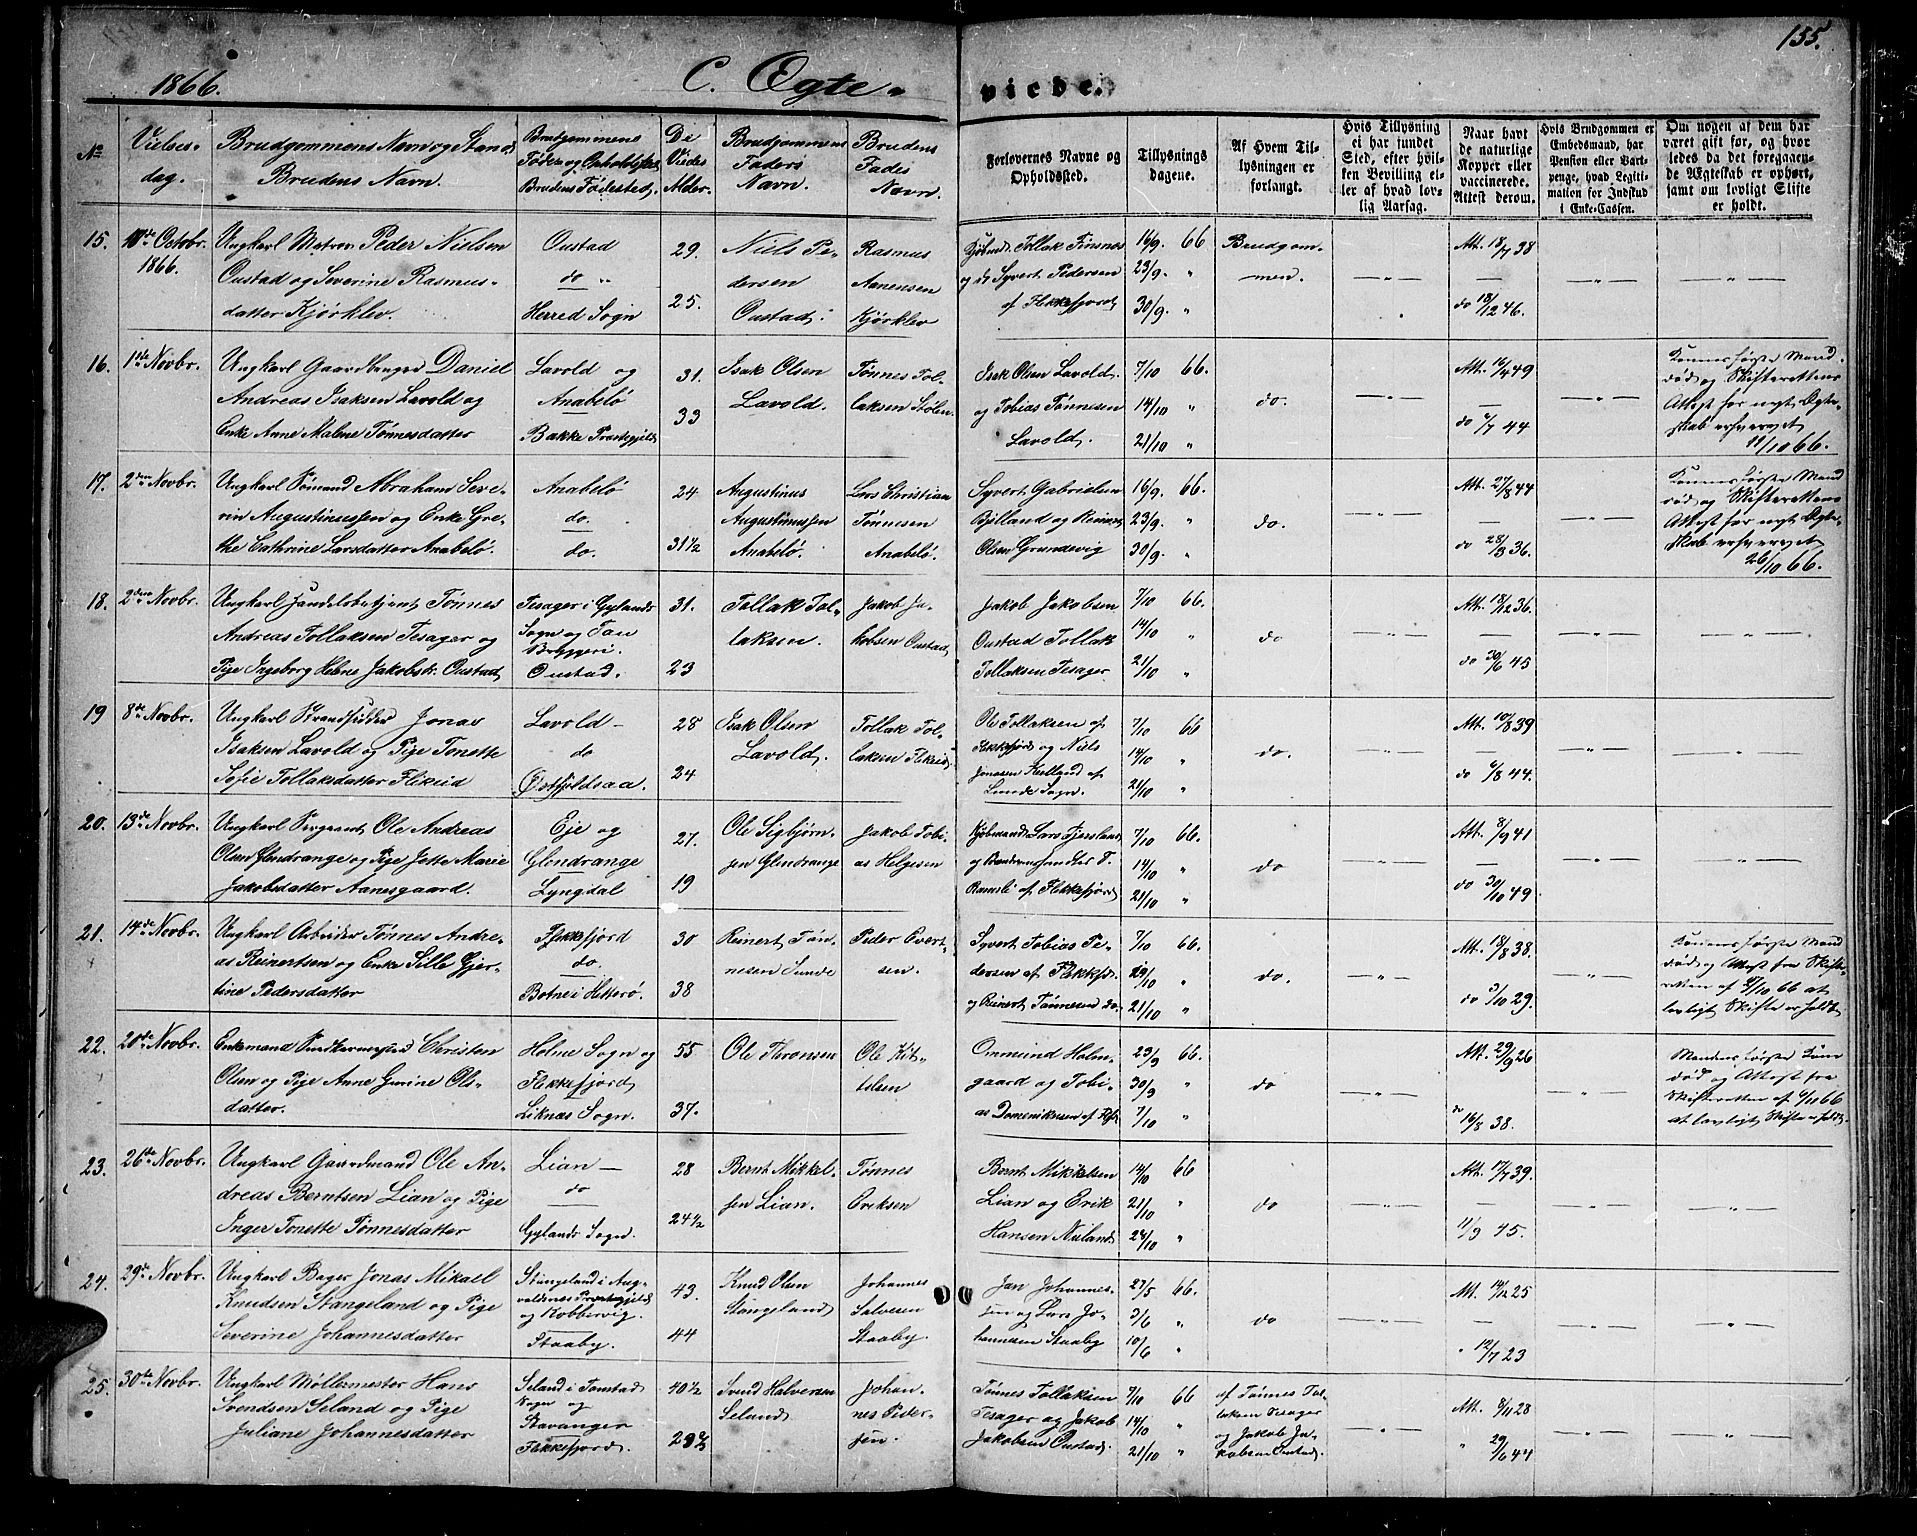 155.
1866.
C. Ægte-
viede.
No
Vielses-
dag.
Brudgommens Navn og Stand
Brudens Navn.
Brudgommens
Føde og Opholdssted
Brudens Fødested,
De
Viedes
Alder.
Brudgommens
Faders
Navn.
Brudens
Faders
Navn.
Forlovernes Navne og
Opholdssted.
Tillysnings
dagene.
Af Hvem Til-
lysningen er
forlangt.
Hvis Tillysning
ei har fundet
Sted, efter hvil-
ken Bevilling el-
ler af hvad lov-
lig Aarsag.
Naar havt
de naturlige
Kopper eller
vaccinerede.
Attest derom.
Hvis Brudgommen er
Embedsmand, har
Pension eller Vart-
penge, hvad Legiti-
mation for Indskud
i Enke-Cassen.
Om nogen af dem har
været gift før, og hvor-
ledes da det foregaaen-
de Ægteskab er ophørt,
samt om lovligt Skifte
er holdt.
15.
10de Octobr.
1866.
Ungkarl Matros Peder Nielsen
Oustad og Severine Rasmus-
datter Kjørklev.
Oustad
do "
Herred Sogn
29.
25.
Niels Pe-
dersen
Oustad.
Rasmus
Aanensen
Kjørklev
Kjøbmd. Tollak Finsnes
og do Syvert Pedersen
af Flekkefjord
16/9. 66
23/9. "
30/9. "
Brudgom-
men.
Att. 18/7 38
do 18/12 46.
16.
1ste Novbr.
Ungkarl Gaardbruger Daniel
Andreas Isaksen Lavold og
Enke Anne Malene Tønnesdatter
Lavold og
Anabelø
Bakke Præstegjeld
31.
33
Isak Olsen
Lavold.
Tønnes Tol-
laksen Stølen.
Isak Olsen Lavold.
og Tobias Tønnesen
Lavold.
7/10 66.
14/10 "
21/10 "
do.
Att. 16/4 49
do 4/7 44
Konens første Mand
død og Skifterettens
Attest for nyt Ægte-
skab erhvervet
11/10 66.
17.
2den Novbr.
Ungkarl Sømand Abraham Seve-
rin Augustinussen og Enke Gre-
the Cathrine Larsdatter Anabelø.
Anabelø
do.
do.
24
31½
Augustinus
Augustinussen
Anabelø.
Lars Christian
Tønnesen
Anabelø.
Syvert Gabrielsen
Bjelland og Reinert
Olsen Grundevig
16/9. 66.
23/9. "
30/9. "
do.
Att. 27/8 44
do 28/8 36.
Konens første Mand
død og Skifterettens
Attest for nyt Ægte-
skab erhvervet
26/10 66.
18.
2den Novbr.
Ungkarl Handelsbetjent Tønnes
Andreas Tollaksen Tesager og
Pige Ingeborg Helene Jakobsdr. Oustad
Tesager i Gylands
Sogn og
Oustad.
31.
23
Tollak Tol-
laksen.
Jakob Ja-
kobsen Oustad
Jakob Jakobsen
Oustad Tollak
Tollaksen Tesager
7/10 66.
14/10 "
21/10 "
do
Att. 18/12 36.
do 30/6 45
19
8de Novbr.
Ungkarl Strandsidder Jonas
Isaksen Lavold og Pige Tonette
Sofie Tollaksdatter Flikeid
Lavold
do
28
24
Isak Olsen
Lavold.
Tollak Tol-
laksen Flikeid.
Ole Tollaksen af
Flekkefjord og Niels
Jonassen Kvelland af
Lunde Sogn.
7/10 66
14/10 "
21/10 "
do.
Att. 10/8 39
do 6/8 44.
20.
13de Novbr.
Ungkarl Sergeant Ole Andreas
Olsen Glendrange og Pige Jette Marie
Jakobsdatter Aanesgaard.
Eje og
Glendrange
Lyngdal
27.
19
Ole Sigbjørn-
sen Glendrange
Jakob Tobi-
as Helgesen
Kjøbmand Lars
og
af Flekkefjord
7/10 66.
14/10 "
21/10 "
do
Att. 8/9 41
do 30/10 49.
21.
14de Novbr.
Ungkarl Arbeider Tønnes Andre-
as Reinertsen og Enke Sille Gjer-
tine Pedersdatter
Flekkefjord
do.
Botne i Hitterø.
30
38
Reinert Tøn-
nesen Sunde
Peder Evert-
sen.
Syvert Tobias Pe-
dersen af Flekkefd.
og Reinert Tønnesen do.
7/10 66.
29/10 "
21/10 "
do.
Att. 18/8 38.
do 3/10 29.
Konens første Mand
død og Attest fra Skifte-
retten af 8/10 66 at
lovligt Skifte er holdt
22.
20de Novbr.
Enkemand Christen
Olsen og Pige Anne Gurine Ole-
datter.
Holme Sogn og
Flekkefjord
Liknes Sogn.
55
37.
Ole Thronsen
Ole Kit-
telsen
Ommund Holm-
gaard og Tobi-
as Domenikusen af Flekkefd
23/9 66.
30/9 "
7/10 "
do
Att. 29/9 26
do
16/8 38.
Mandens første Kone
død og Attest fra
Skifteretten af 9/11 66
at lovligt Skifte er holdt.
23.
26de Novbr.
Ungkarl Gaardmand Ole An-
dreas Berntsen Lian og Pige
Inger Tonette Tønnesdatter
Lian
do
Gylands Sogn.
28
24½
Bernt Mikkel-
sen Lian.
Tønnes
Eriksen
Bernt Mikkelsen
Lian og Erik
Hansen Nuland
14/10 66
21/10 "
28/10 "
do
Att. 17/7 39.
11/9 45.
24.
29de Novbr.
Ungkarl Bager Jonas Mikael
Knudsen Stangeland og Pige
Severine Johannesdatter
Stangeland i Aug-
valdnes Præstegjeld
og Kobbervig.
Staaby.
43.
44
Knud Olsen
Stangeland
Johannes
Salvesen
Staaby.
Jan Johannes-
sen og Lars Jo-
hannesen Staaby
27/5 66.
3/6 "
10/6 "
do
Att. 14/12 25
" 12/7 23
25.
30te Novbr.
Ungkarl Møllermester Hans
Svendsen Seland og Pige
Juliane Johannesdatter
Seland i Tonstad
Sogn og
Stavanger
Flekkefjord.
40½
23½
Svend Halvorsen
Seland
Johan-
nes Peder-
sen.
Tønnes Tollaksen
Tesager og Jakob
Jakobsen Oustad.
7/10 66
14/10 "
21/10 "
af Tønnes Tol-
laksen Tesager
og Jakob Ja-
kobsen Oustad.
Att. 8/11 28
" 29/6 44